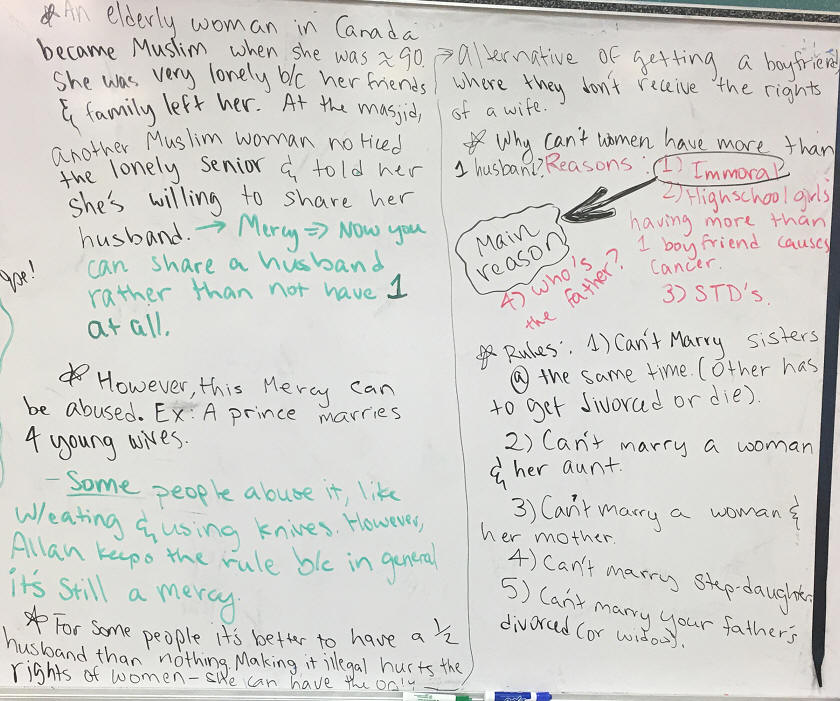 * An elderly woman in Canada
became Muslim when she was ≈ 90.
She was very lonely b/c her friends
& family left her. At the masjid,
another Muslim woman noticed
the lonely senior & told her
she's willing to share her
husband. → Mercy ⇒ Now you
can share a husband
rather than not have 1
at all.
* However, this Mercy can
be abused. Ex: A prince marries
4 young wives.
- Some people abuse it, like
w/eating & using knives. However,
Allah keeps the rule b/c in general
it's still a mercy.
* For some people it's better to have a 1/2
husband than nothing. Making it illegal hurts the
rights of women - she can have the only
→ alternative of getting a boyfriend
where they don't receive the rights
of a wife.
* Why can't women have more than
1 husband? Reasons: 1) Immoral
Main
reason
2) Highschool girls
having more than
1 boyfriend causes
cancer.
3) STD's.
4) Who's
the father?
* Rules: 1) Can't Marry sisters
@ the same time. (Other has
to get divorced or die).
2) Can't marry a woman
& her aunt.
3) Can't marry a woman &
her mother.
4) Can't marry step-daughter.
5) Can't marry your father's
divorced (or widow).